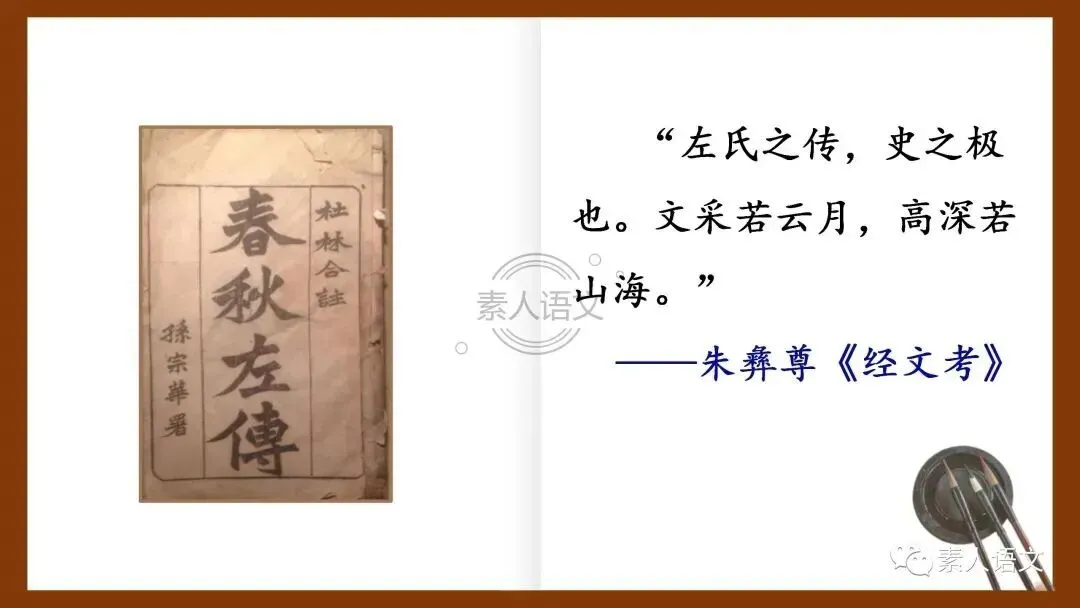 杜林合註
春秋左傳
孫宗華署
“左氏之传，史之极
也。文采若云月，高深若
山海。”
——朱彝尊《经文考》
素人语文
素人语文